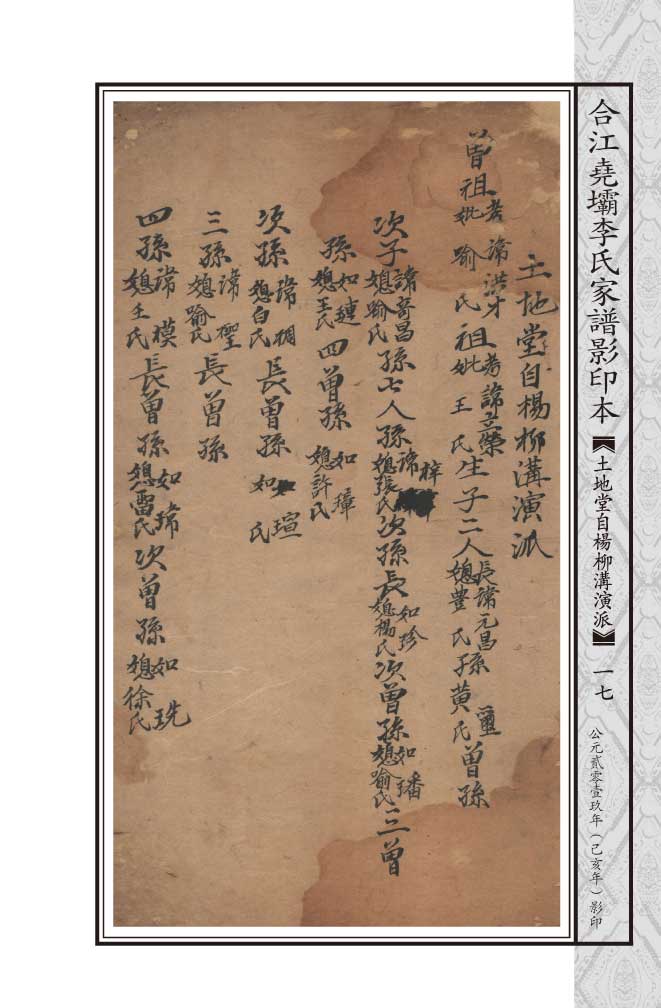 合江堯壩李氏家譜影印本【土地堂自楊柳溝演派】一七 公元貳零壹玖年（己亥年）影印
土地堂自楊柳溝演派
曾祖考諱洪才妣喻氏祖考諱芸榮妣王氏生子二人長諱元昌媳豊氏孫璽黄氏曾孫
次子諱奇昌媳喻氏孫七人孫諱梓媳張氏次孫長如珍媳楊氏次曾孫如璠媳喻氏三曾
孫如璉媳王氏四曾孫如璋媳許氏
次孫諱榈媳白氏長曾孫如瑄氏
三孫諱聖媳喻氏長曾孫
四孫諱模媳王氏長曾孫如瑋媳雷氏次曾孫如珗媳徐氏